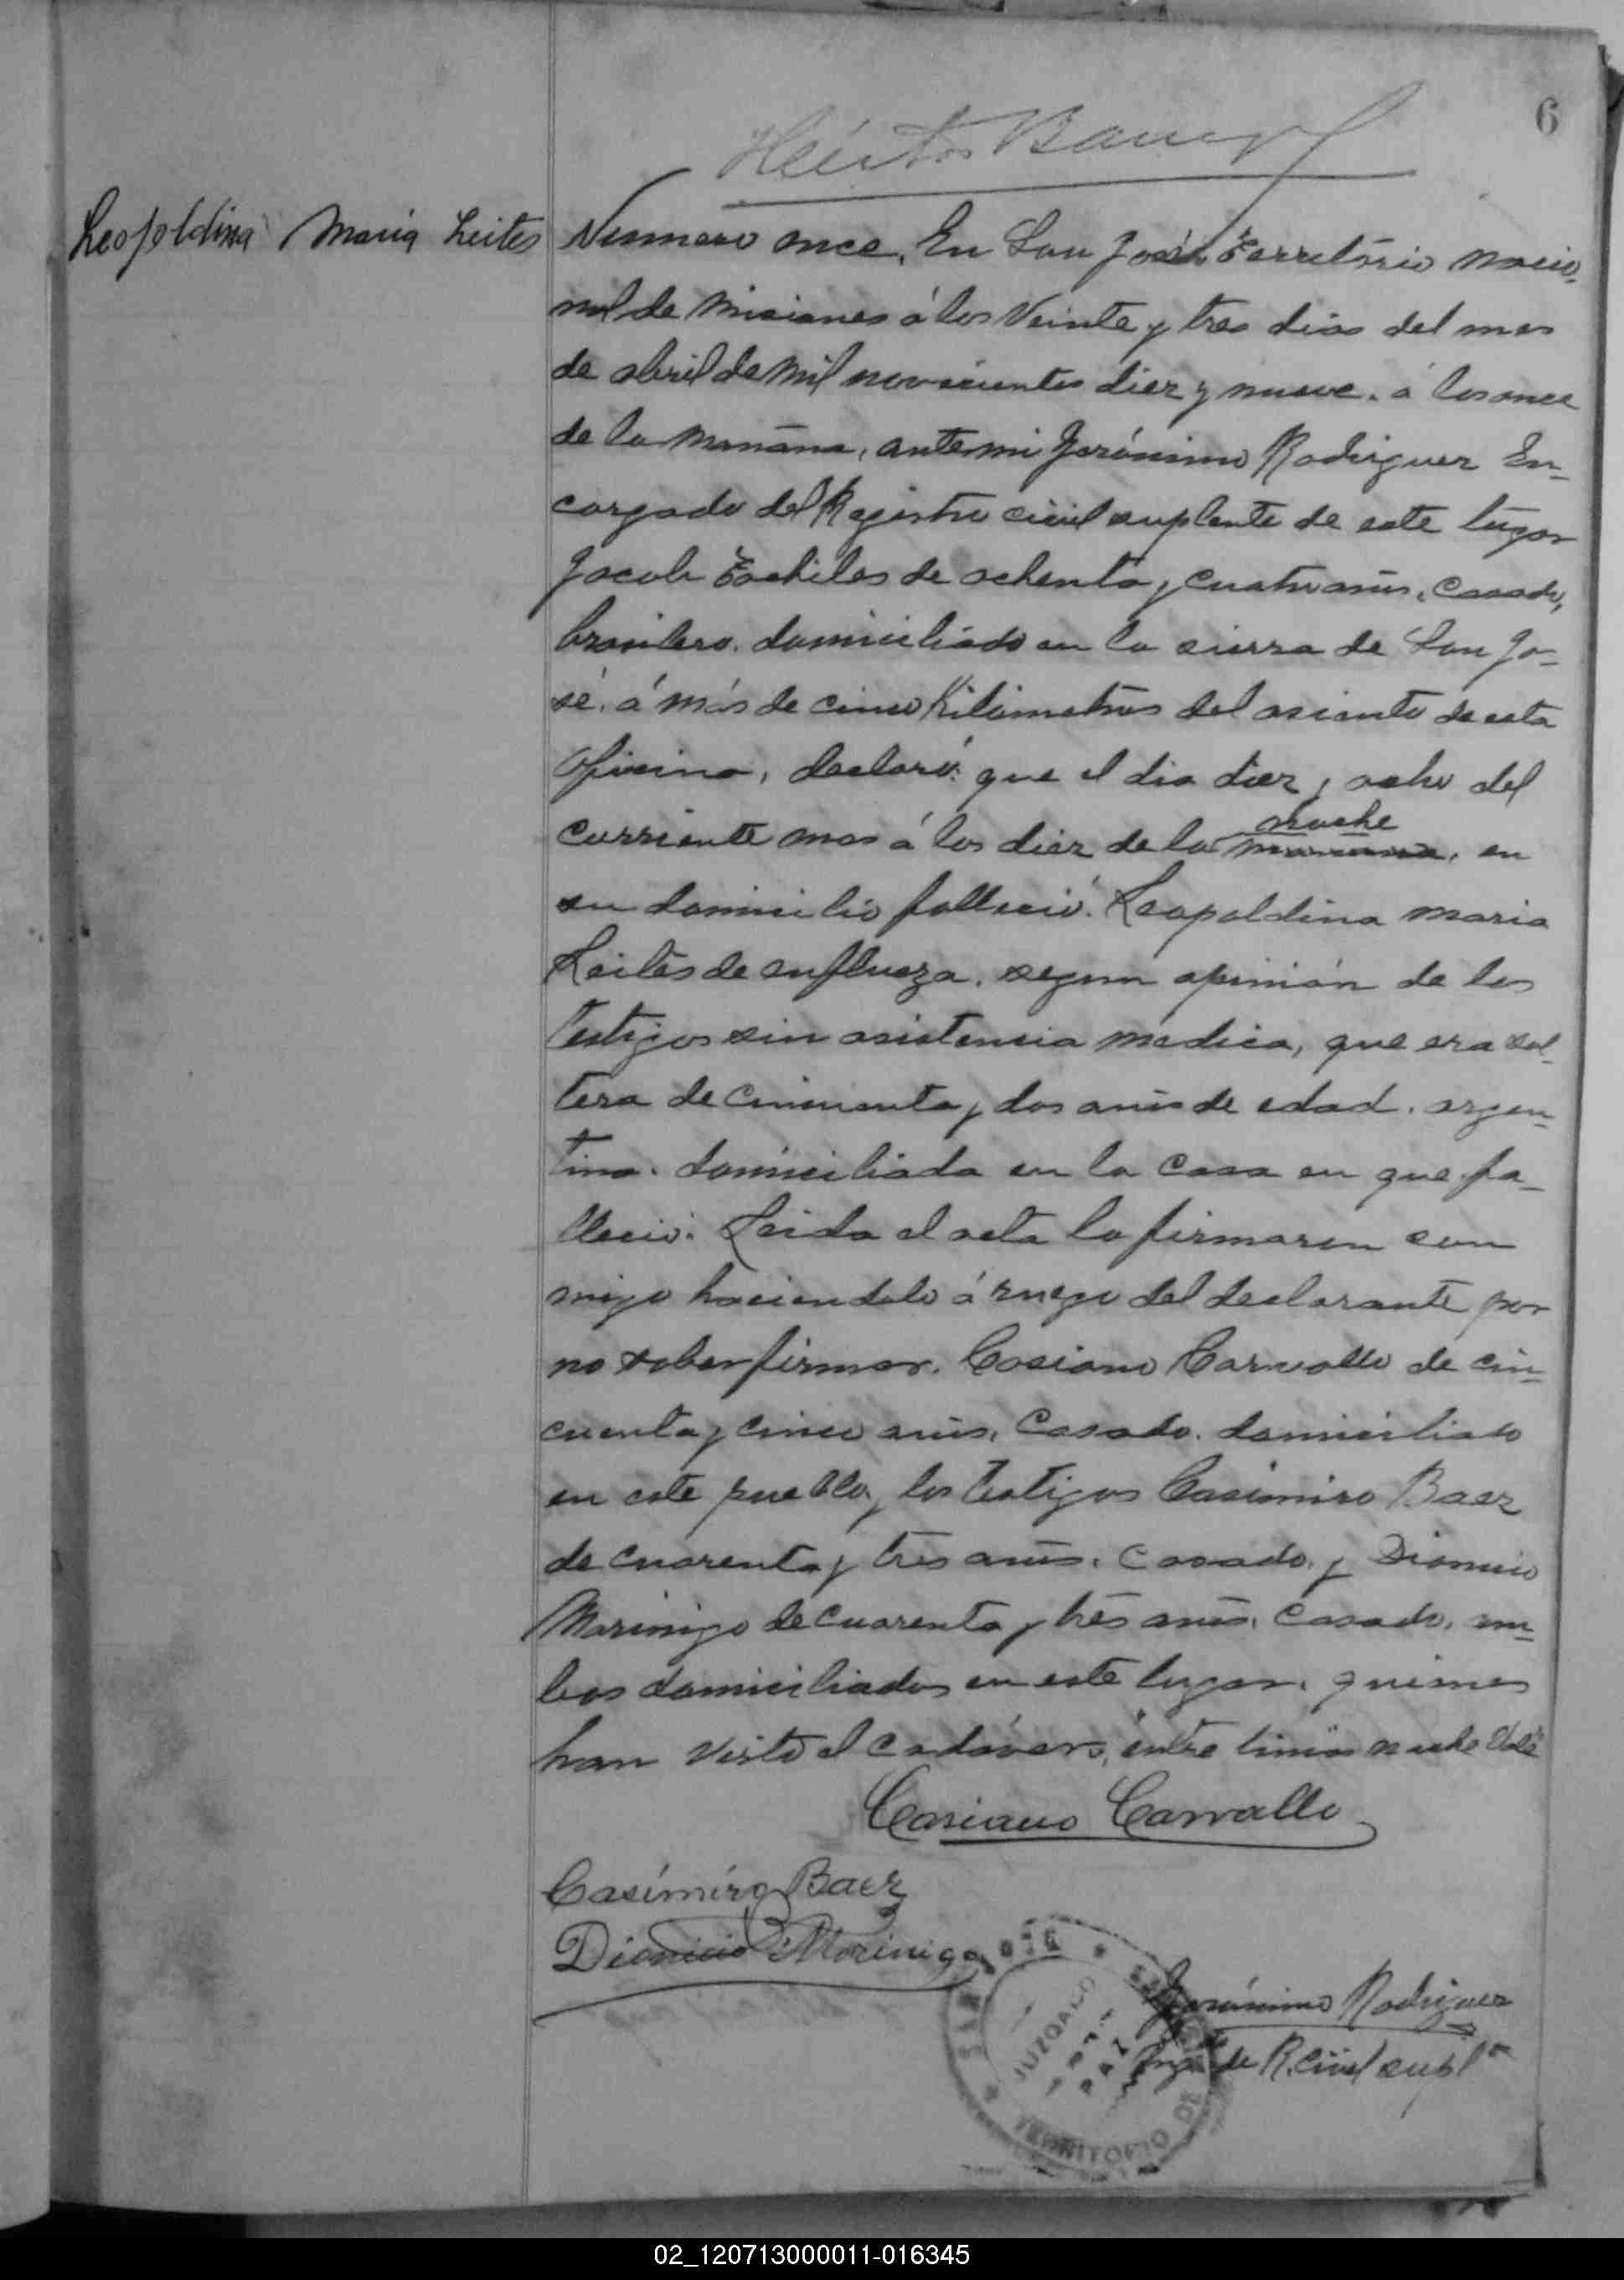 6
Héctor
Leopoldina Maria Leites
Numero once. En San José Territorio nacio-
nal de Misiones á los Veinte y tres dias del mes
de abril de mil novecientos diez y nueve. á las once
de la mañana, ante mi Jerónimo Rodriguez En-
cargado del Registro civil suplente de este lugar
Jacob de ochenta y cuatro años, casado,
brasilero. domiciliado en la sierra de San Jo-
sé. á más de cinco Kilómetros del asiento de esta
Oficina, declaró: que el dia diez y ocho del
corriente mes á las diez de la mañana, en
noche
su domicilio falleció. Leopoldina maria
Leites de enflueza. segun opinión de los
testigos sin asistencia medica, que era sol-
tera de cincuenta y dos años de edad. argen-
tina. domiciliada en la casa en que fa-
lleció. Leida el acta la firmaron con
migo haciendolo á ruego del declarante por
no saber firmar. Casiano Carvallo de cin-
cuenta y cinco años, Casado. domiciliado
en este pueblo y los testigos Casimiro Baez
de cuarenta y tres años. casado. y Dionicio
Morinigo de cuarenta y tres años, Casado. am-
bos domiciliados en este lugar. quienes
han visto el cadáver, entre linias noche Vale
Casiano Carvallo
Casímíro Baez
Dionicio Morinigo
Jerónimo Rodriguez
Engdo de R. Civil suplte
SAN JOSÉ
JUZGADO
DE
PAZ
TERRITORIO DE
02_120713000011-016345